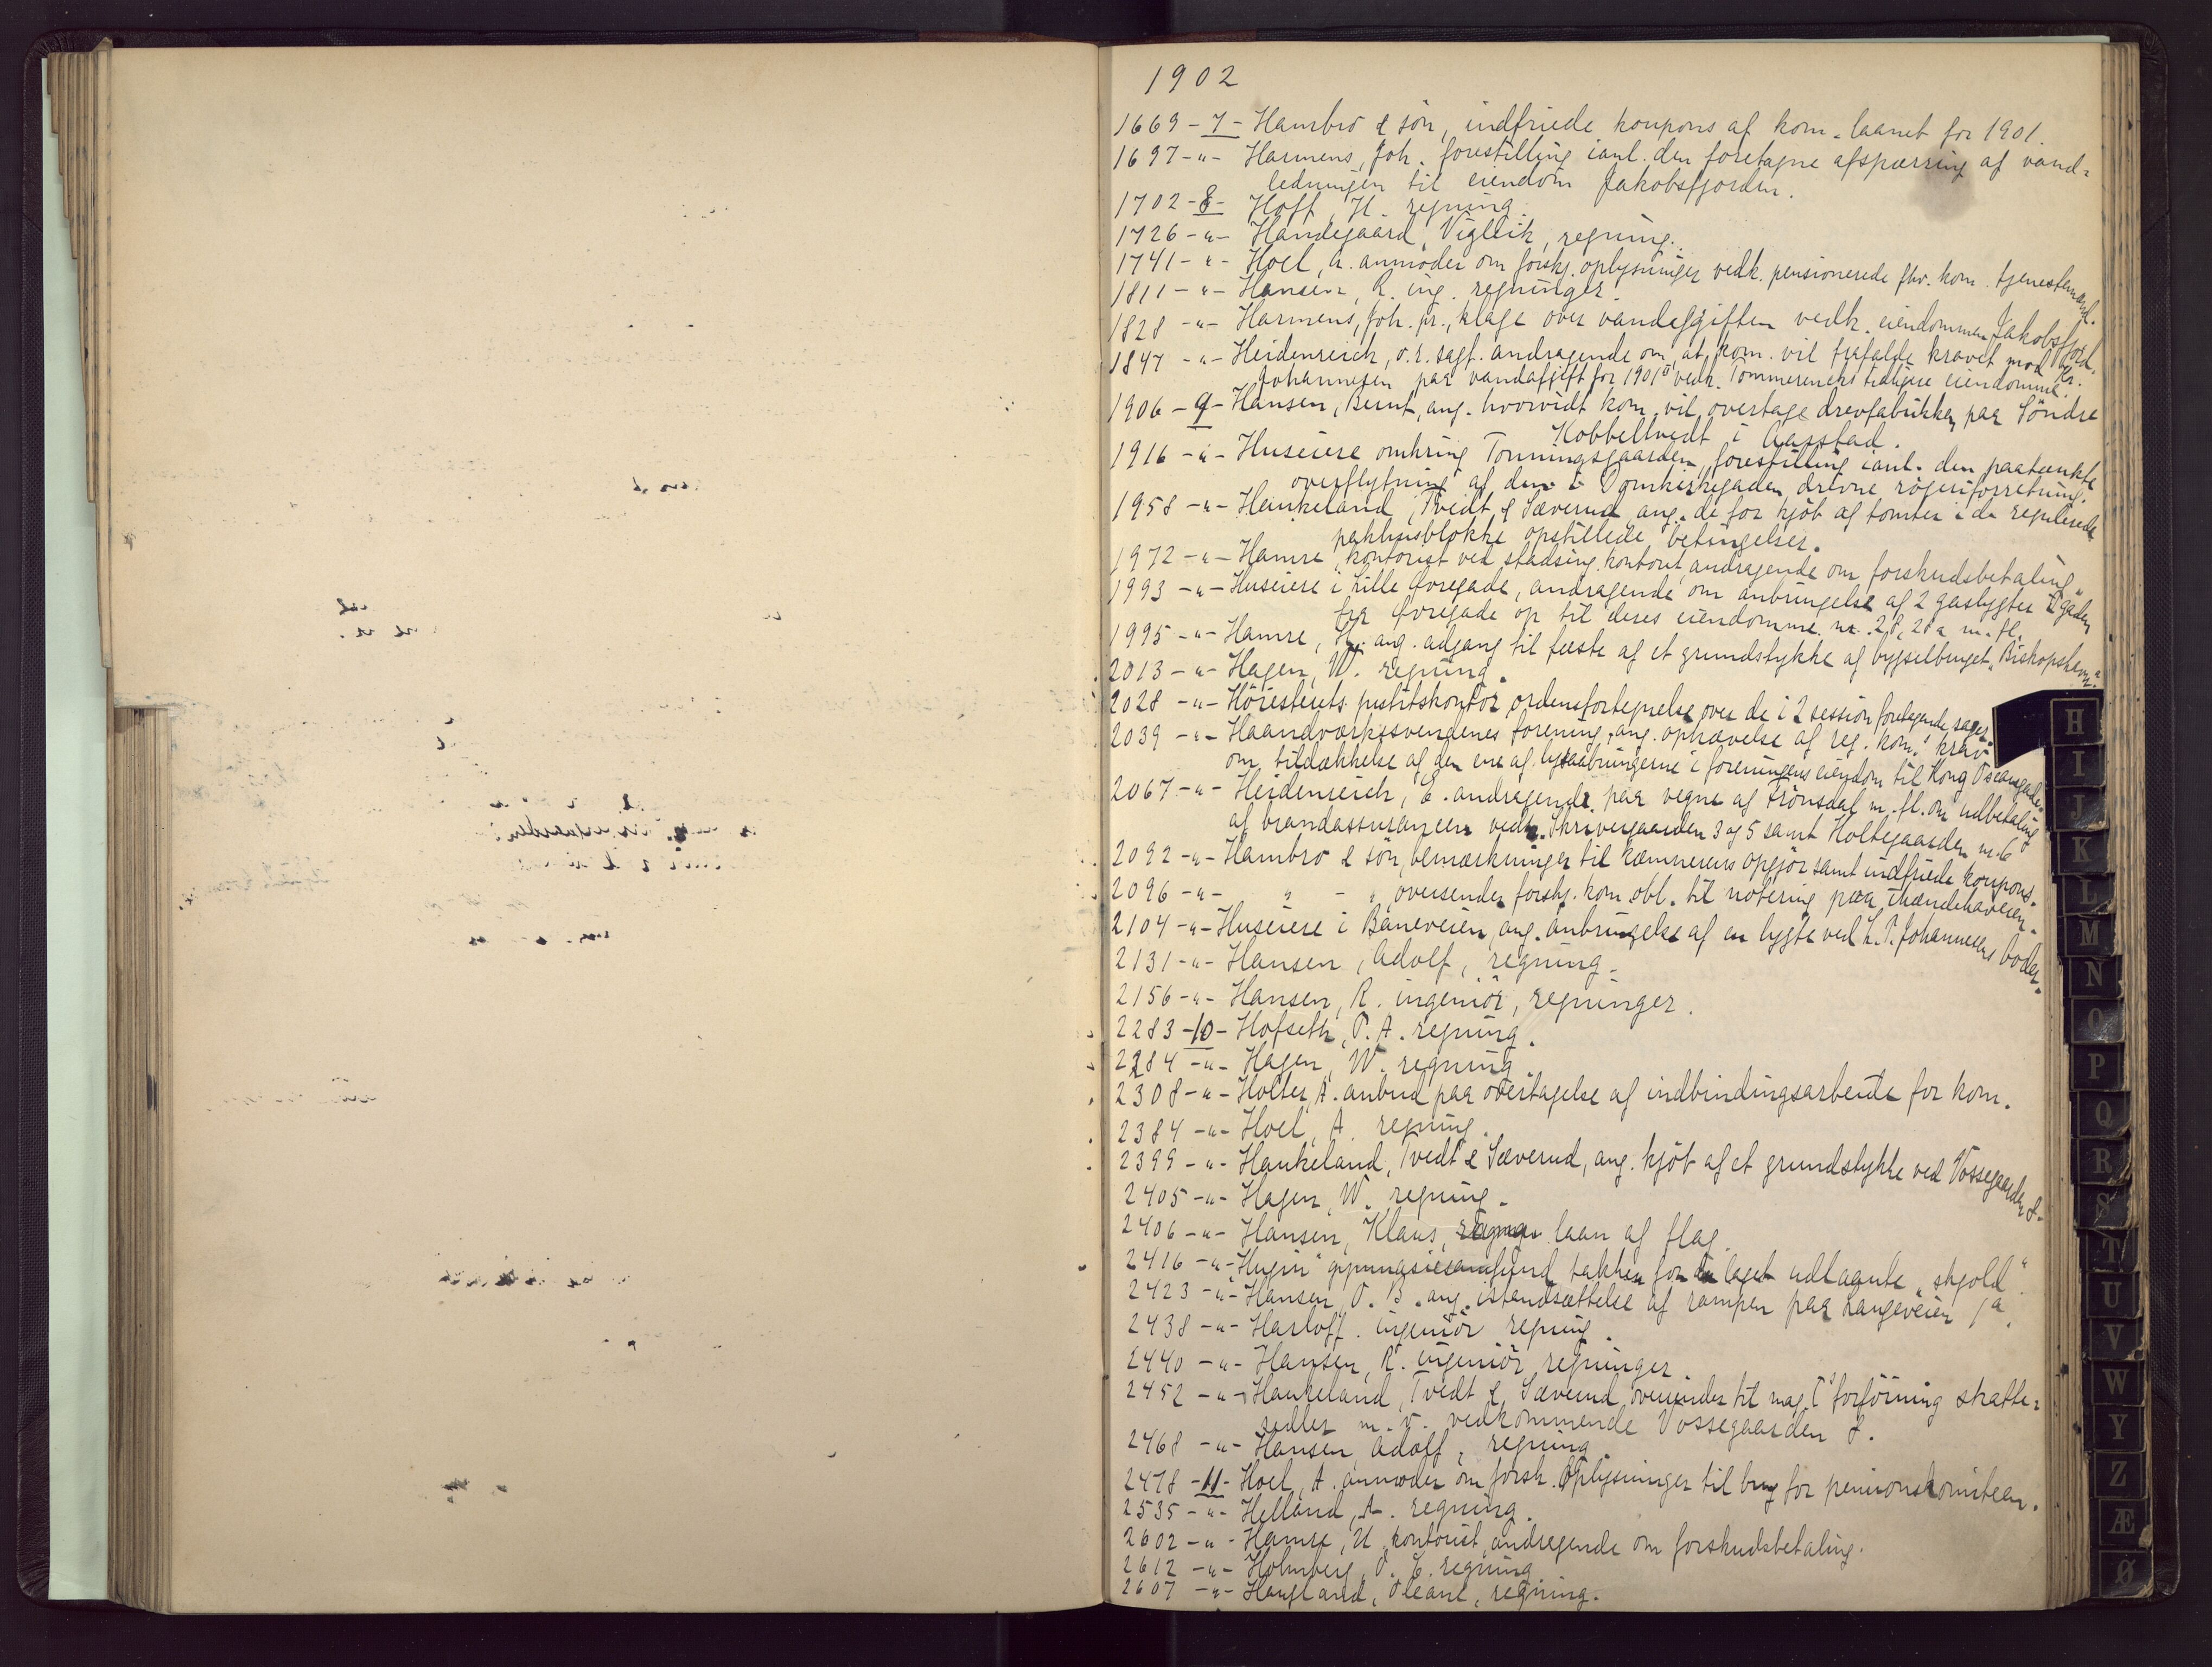 1902
1669 - 7 - Hambro & sön, indfriede koupons af kom. laanet for 1901.
1697 - " - Harmens, Joh. forestilling ianl. den foretagne afspærring af vand-
ledningen til eiendom Jakobsfjorden.
1702 - 8 - Hoff, H. regning.
1726 - " - Handegaard, Vigleik, regning.
1741 - " - Hoel, A. anmoder om forskj. oplysninger vedk. pensionerede fhv. kom. tjenestemænd.
1811 - " - Hansen, R. ing. regninger.
1828 - " - Harmens, Joh. jr., klage over vandafgiften vedk. eiendommen Jakobsfjord.
1847 - " - Heidenreich, o.r.sagf. andragende om, at kom. vil frafalde kravet mod Kr.
Johannesen paa vandafgift for 1901 vedk. Tommerenens tidligere eiendomme.
1906 - 9 - Hansen, Bernt, ang. hvorvidt kom. vil overtage drevfabrikken paa Söndre
Kobbeltvedt i Aarstad.
1916 - " - Huseiere omkring Tonningsgaarden, forestilling ianl. den paatænkte
overflytning af den i Domkirkegaden drevne rögeriforretning.
1958 - " - Haukeland, Tvedt & Sæverud ang. de for kjöb af tomter i de regulerede
pakhusblokke opstillede betingelser.
1972 - " - Hamre, kontorist ved stadsing. kontoret, andragende om forskudsbetaling.
1993 - " - Huseiere i Lille Øvregade, andragende om anbringelse af 2 gaslygter i gaden
fra Øvregade op til deres eiendomme nr. 28, 28a m. fl.
1995 - " - Hamre, H. ang. adgang til fæste af et grundstykke af bygselbruget "Biskopshavn".
2013 - " - Hagen, W. regning.
2028 - " - Höiesterets justitskontor, ordensfortegnelse over de i 2 session foretagende sager.
2039 - " - Haandværkssvendenes forening, ang. ophævelse af reg. kom.s krav
om tildækkelse af den ene af lysaabningerne i foreningens eiendom til Kong Oscarsgade.
2067 - " - Heidenreich, E. andragende paa vegne af Frönsdal m. fl. om udbetaling
af brandassurancen vedk. Skrivergaarden 3 og 5 samt Holtegaarden nr. 6
2092 - " - Hambro & sön, bemærkninger til kæmnerens opgjör samt indfriede koupons.
2096 - " - " - " oversender forskj. kom. obl. til notering paa ihændehaveren.
2104 - " - Huseiere i Baneveien, ang. anbringelse af en lygte ved L. P. Johannesens boder.
2131 - " - Hansen, Adolf, regning.
2156 - " - Hansen, R. ingeniör, regninger.
2283 - 10 - Hofseth, P. A. regning.
2284 - " - Hagen, W. regning.
2308 - " - Holter, A. anbud paa overtagelse af indbindingsarbeide for kom.
2384 - " - Hoel, A. regning.
2399 - " - Haukeland, Tvedt & Sæverud, ang. kjöb af et grundstykke ved Vossegaarden 8.
2405 - " - Hagen, W. regning.
2406 - " - Hansen, Klaus, laan af flag.
2416 - " - "Hugin" gymnasiesamfund takker for laget udtagute "skjold".
2423 - " - Hansen, O. B. ang. istandsættelse af rampen paa Kangeveien 1a.
2438 - " - Harloff. ingeniör regning.
2440 - " - Hansen, R. ingeniör, regninger.
2452 - " - Haukeland, Tvedt & Sæverud oversender til mag.s forföining skatte-
sedler m. v. vedkommende Vossegaarden 8.
2468 - " - Hansen, Adolf, regning.
2478 - 11 - Hoel, A. anmoder om forsk. oplysninger til brug for pensionskomiteen.
2535 - " - Helland, A. regning.
2602 - " - Hamre, H. kontorist, andragende om forskudsbetaling.
2612 - " - Holmberg, O. E. regning.
2607 - " - Haugland, Oleane, regning.
H
I
J
K
L
M
N
O
P
Q
R
S
T
U
V
W
Y
Z
Æ
Ø